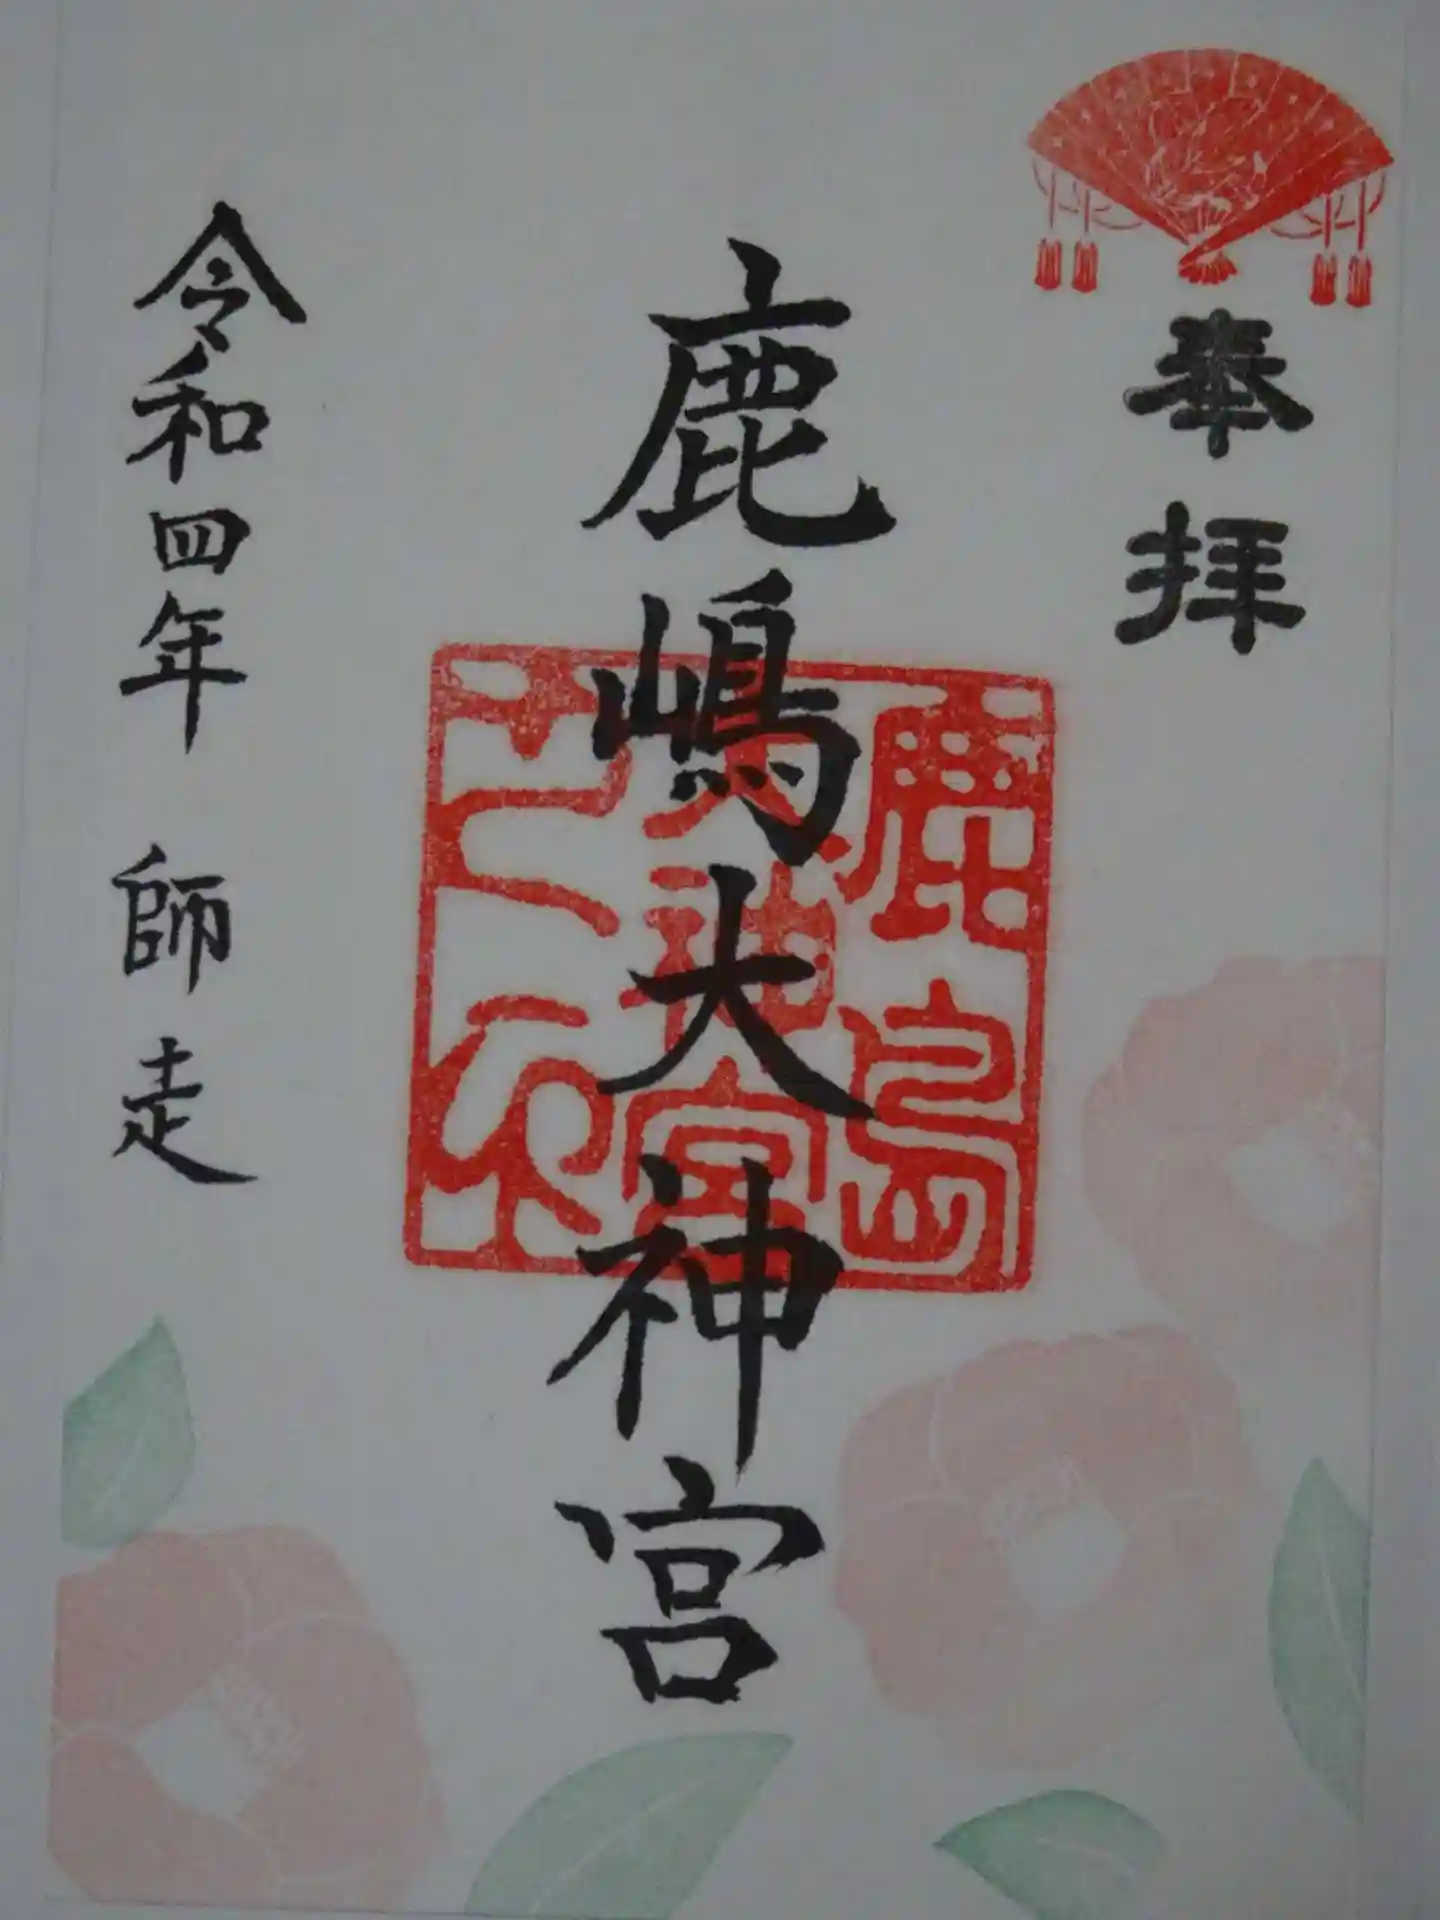 奉拝
鹿嶋大神宮
鹿島
大神宮
之印
令和四年 師走